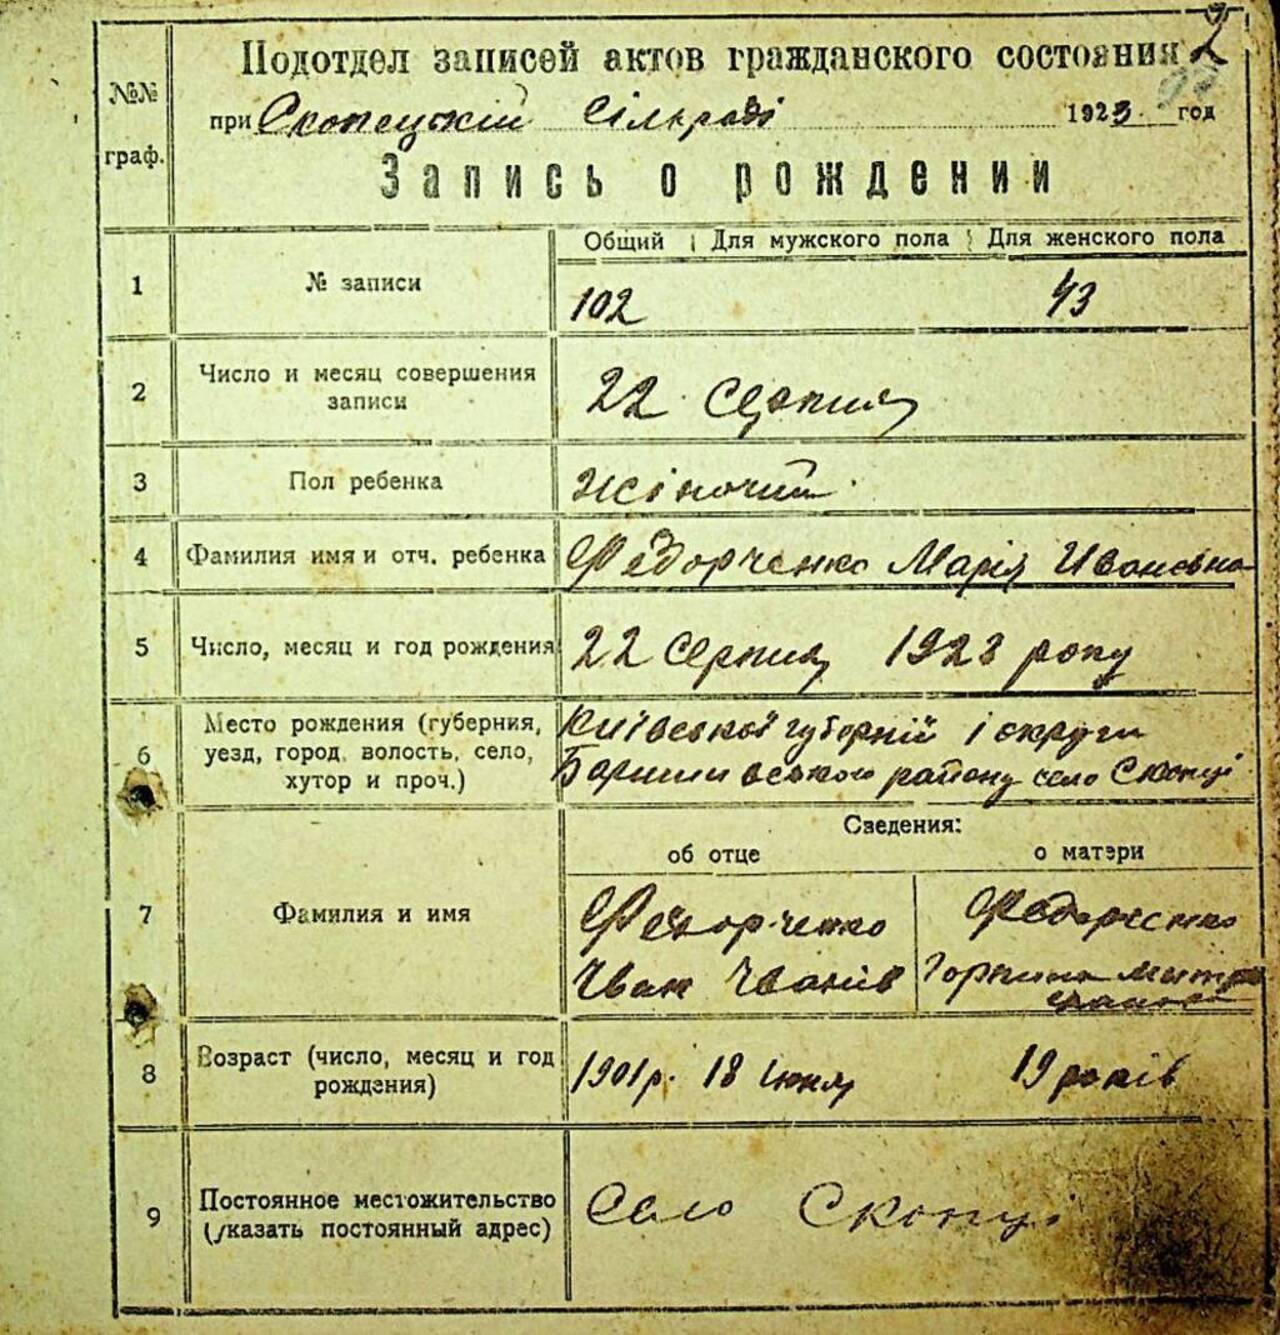 2
Подотдел записей актов гражданского состояния
№№ граф.
при Скопецькій Сільраді 1923 год
Запись о рождении
Общий Для мужского пола Для женского пола
1 № записи 102 43
2 Число и месяц совершения записи 22 Серпня
3 Пол ребенка жіночий
4 Фамилия имя и отч. ребенка Федорченко Марія Ивановна
5 Число, месяц и год рождения 22 серпня 1923 року
6 Место рождения (губерния, уезд, город, волость, село, хутор и проч.)
Київської губерній і округи
Баришивського району село Скопці
Сведения:
об отце о матери
7 Фамилия и имя
Федорченко Федорченко
Иван Іванів Горпина
8 Возраст (число, месяц и год рождения) 1901 р. 18 Июня 19 років
9 Постоянное местожительство (указать постоянный адрес) Село Скопці